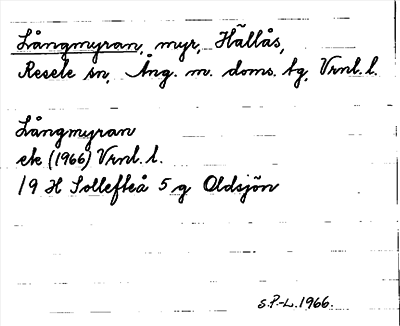 Långmyran, myr, Hällås,
Resele sn, Ång. m. doms. bg, Vrnl. l.
Långmyran
ek (1966) Vrnl. l.
19 H Sollefteå 5 g Oldsjön
S.P.-L. 1966.